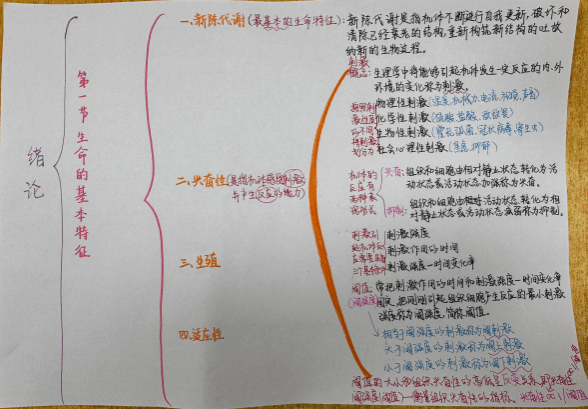 绪论
第一节生命的基本特征
一.新陈代谢(最基本的生命特征):新陈代谢是指机体不断进行自我更新,破坏和
清除已经衰老的结构,重新构筑新结构的吐故
纳新的生物过程。
二.兴奋性
三.生殖
四.适应性
刺激
概念:生理学中将能够引起机体发生一定反应的内、外
环境的变化称为刺激。
物理性刺激(温度、机械力、电流、
化学性刺激
生物性刺激
社会心理性刺激
兴奋:组织和细胞由相对静止状态转化为活
动状态或活动状态加强称为兴奋。
抑制:组织和细胞由相对活动状态转化为相
对静止状态或活动状态减弱称为抑制。
刺激强度
刺激作用的时间
刺激强度-时间变化率
阈值 常把刺激作用的时间和刺激强度-时间变化率
(阈强度)固定,把刚刚引起组织细胞产生反应的最小刺激
强度称为阈强度,简称阈值。
相当于阈强度的刺激称为阈刺激
大于阈强度的刺激称为阈上刺激
小于阈强度的刺激称为阈下刺激
阈值的大小和组织兴奋性的高低呈反变关系,即兴奋性∝1/阈值
阈强度(阈值)-衡量组织兴奋性的指标。兴奋性∝1/阈值